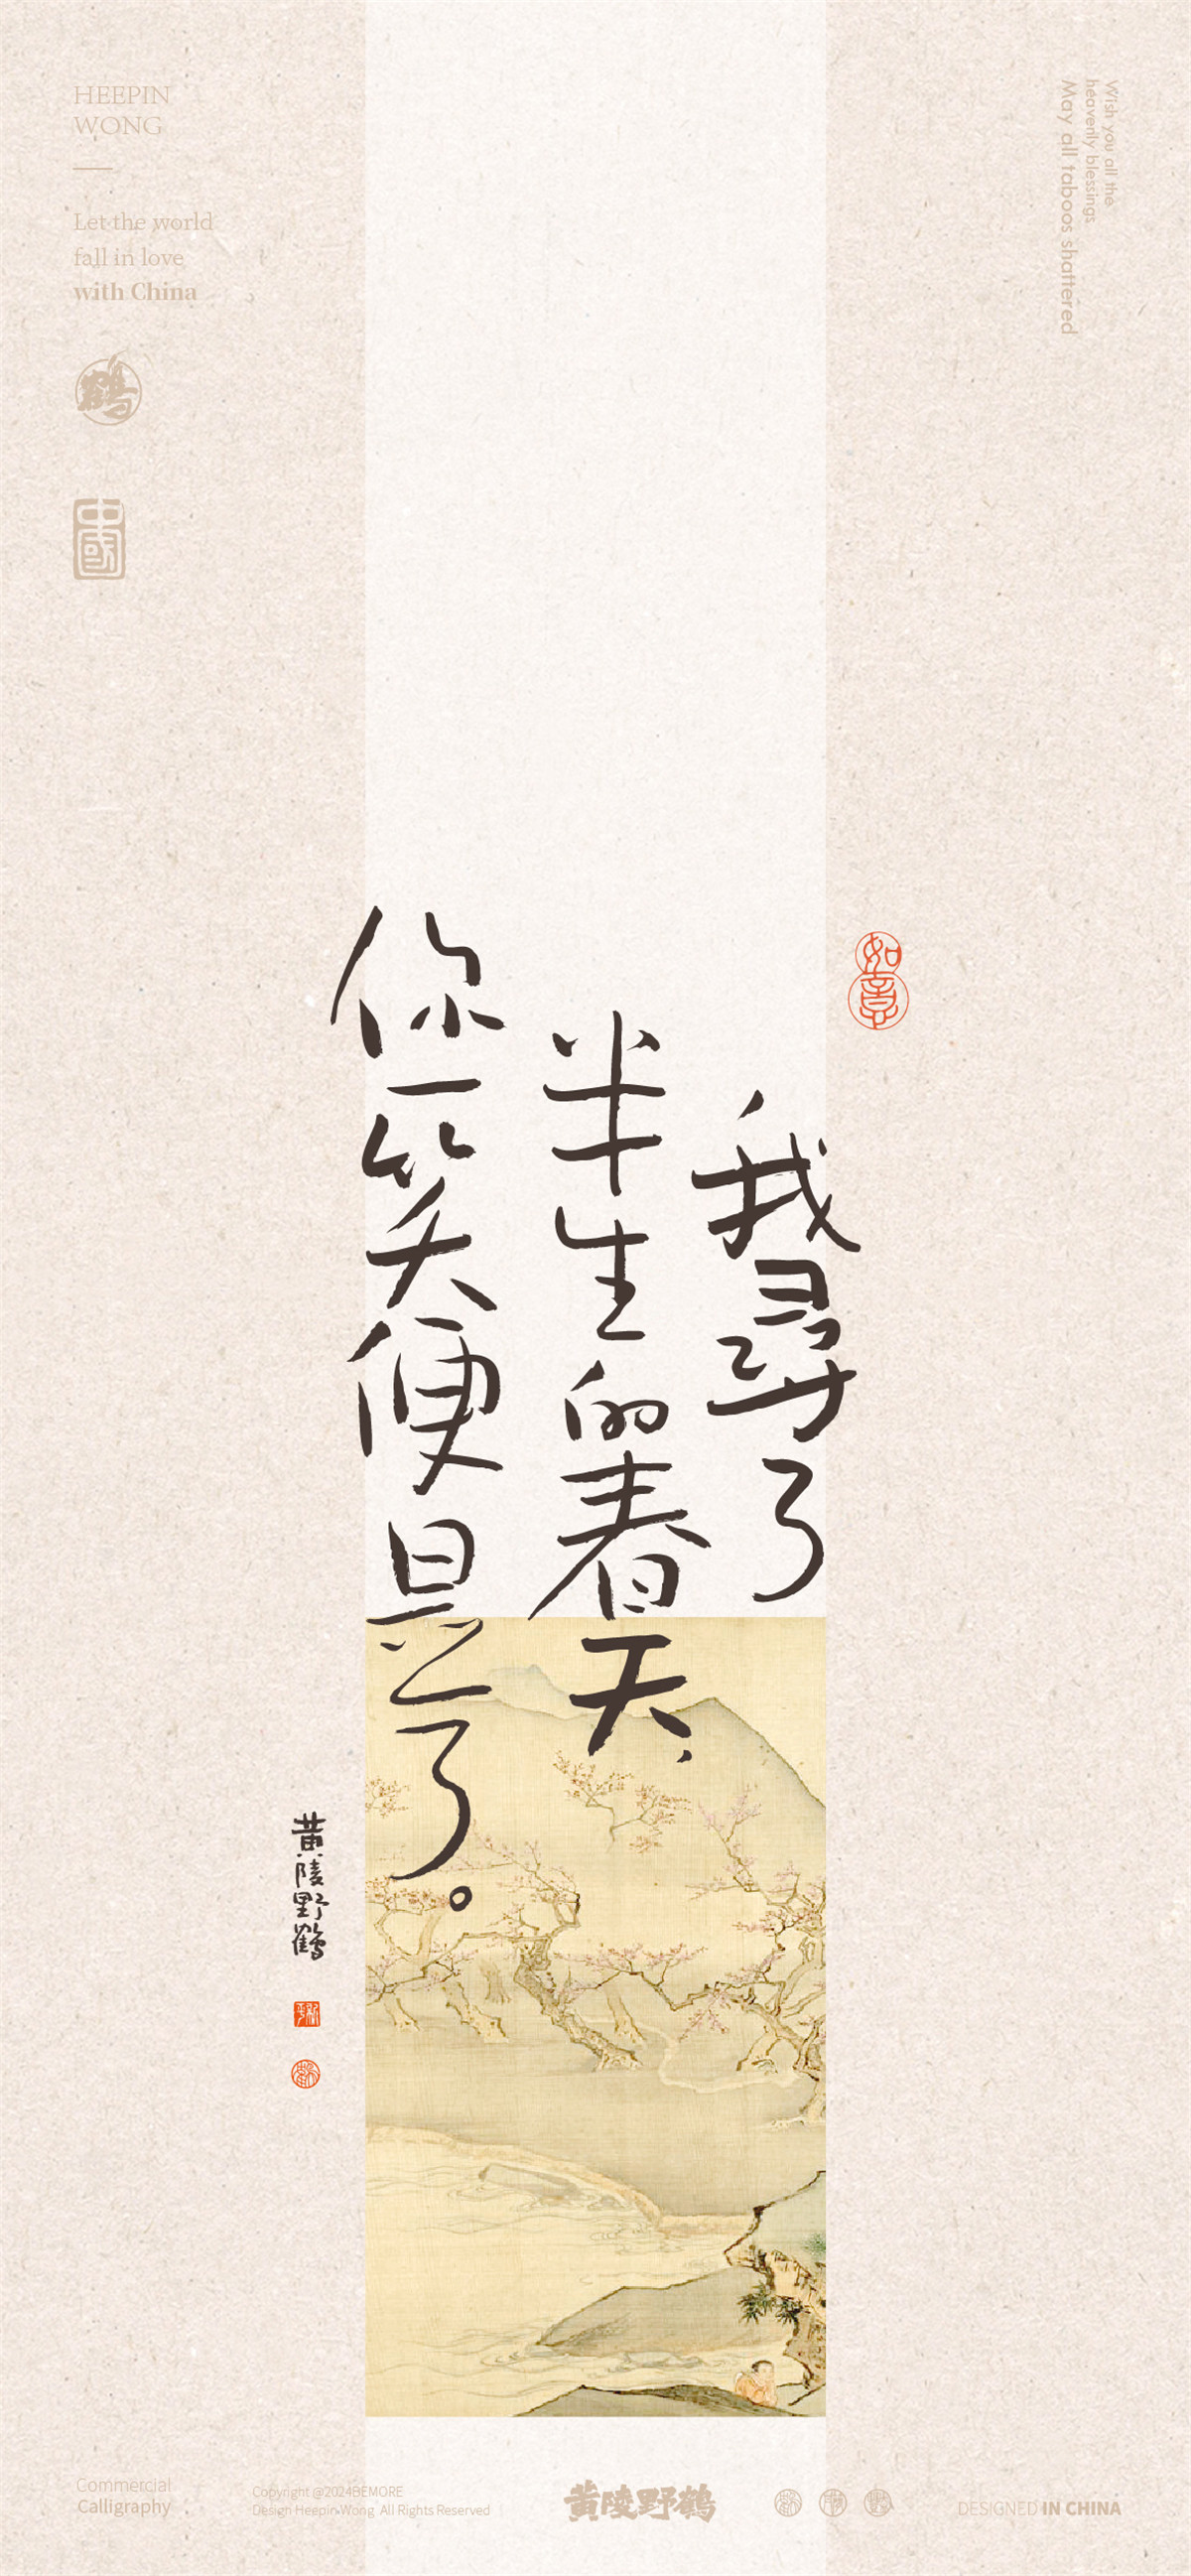 HEEPIN
WONG
Let the world
fall in love
with China
鶴
中國
Wish you all the
heavenly blessings
May all taboos shattered
如意
我尋了
半生的春天，
你一笑便是了。
黄陵野鶴
Commercial
Calligraphy
Copyright @2024BEMORE
Design Heepin Wong All Rights Reserved
黄陵野鶴
DESIGNED IN CHINA